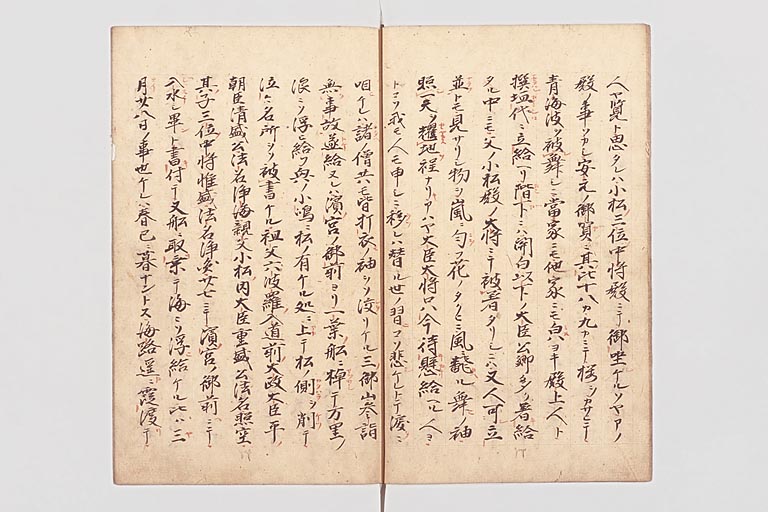 人ヤ覧ト思タレハ小松三位中将殿ニテ御坐ケルソヤアノ
殿ノ事ソカシ安元ノ御賀ニ其比十八カ九カニテ桜ヲカサシテ
青海波ヲ被舞シニ當家ニモ他家ニモ白ハヨキ殿上人ト
撰垣代ニ立給ヘリ階下ニハ関白以下ノ大臣公卿多ク着給
タル中ニモ父小松殿ノ大将ニテ被着タリシニハ又人可立
並トモ見サリシ物ヲ嵐ニ匂フ花ノタクミ風ニ飜ル舞ノ袖
照シ天ヲ耀地程ナリアハヤ大臣大将ハ今待懸給ヘル人ヨ
トコソ我モ人モ申シニ移レハ替ル世ノ習コソ悲ケレトテ涙ニ
咽ケレハ諸ノ僧共モ皆打衣ノ袖ヲソ浚リケル三御山参詣
無事故並給又シハ濱宮ノ御前ヨリ一葉ノ船ニ棹テ万里ノ
浪ニソ浮ヒ給フ奥ノ小嶋ニ松ノ有ケル処ニ上テ松ノ側ヲ削テ
泣々名所ヲソ被書ケル祖父六波羅入道前大政大臣平ノ
朝臣清盛公法名浄海親父小松内大臣重盛公法名照空
其子三位中将惟盛法名浄円廿七ニテ濱宮ノ御前ニテ
入水シ畢ト書付テ又船ニ取乗テ海ニソ浮給ケル比ハ三
月廿八日ノ事也ケレハ春已ニ暮ナントス海路遥ニ霞渡テ